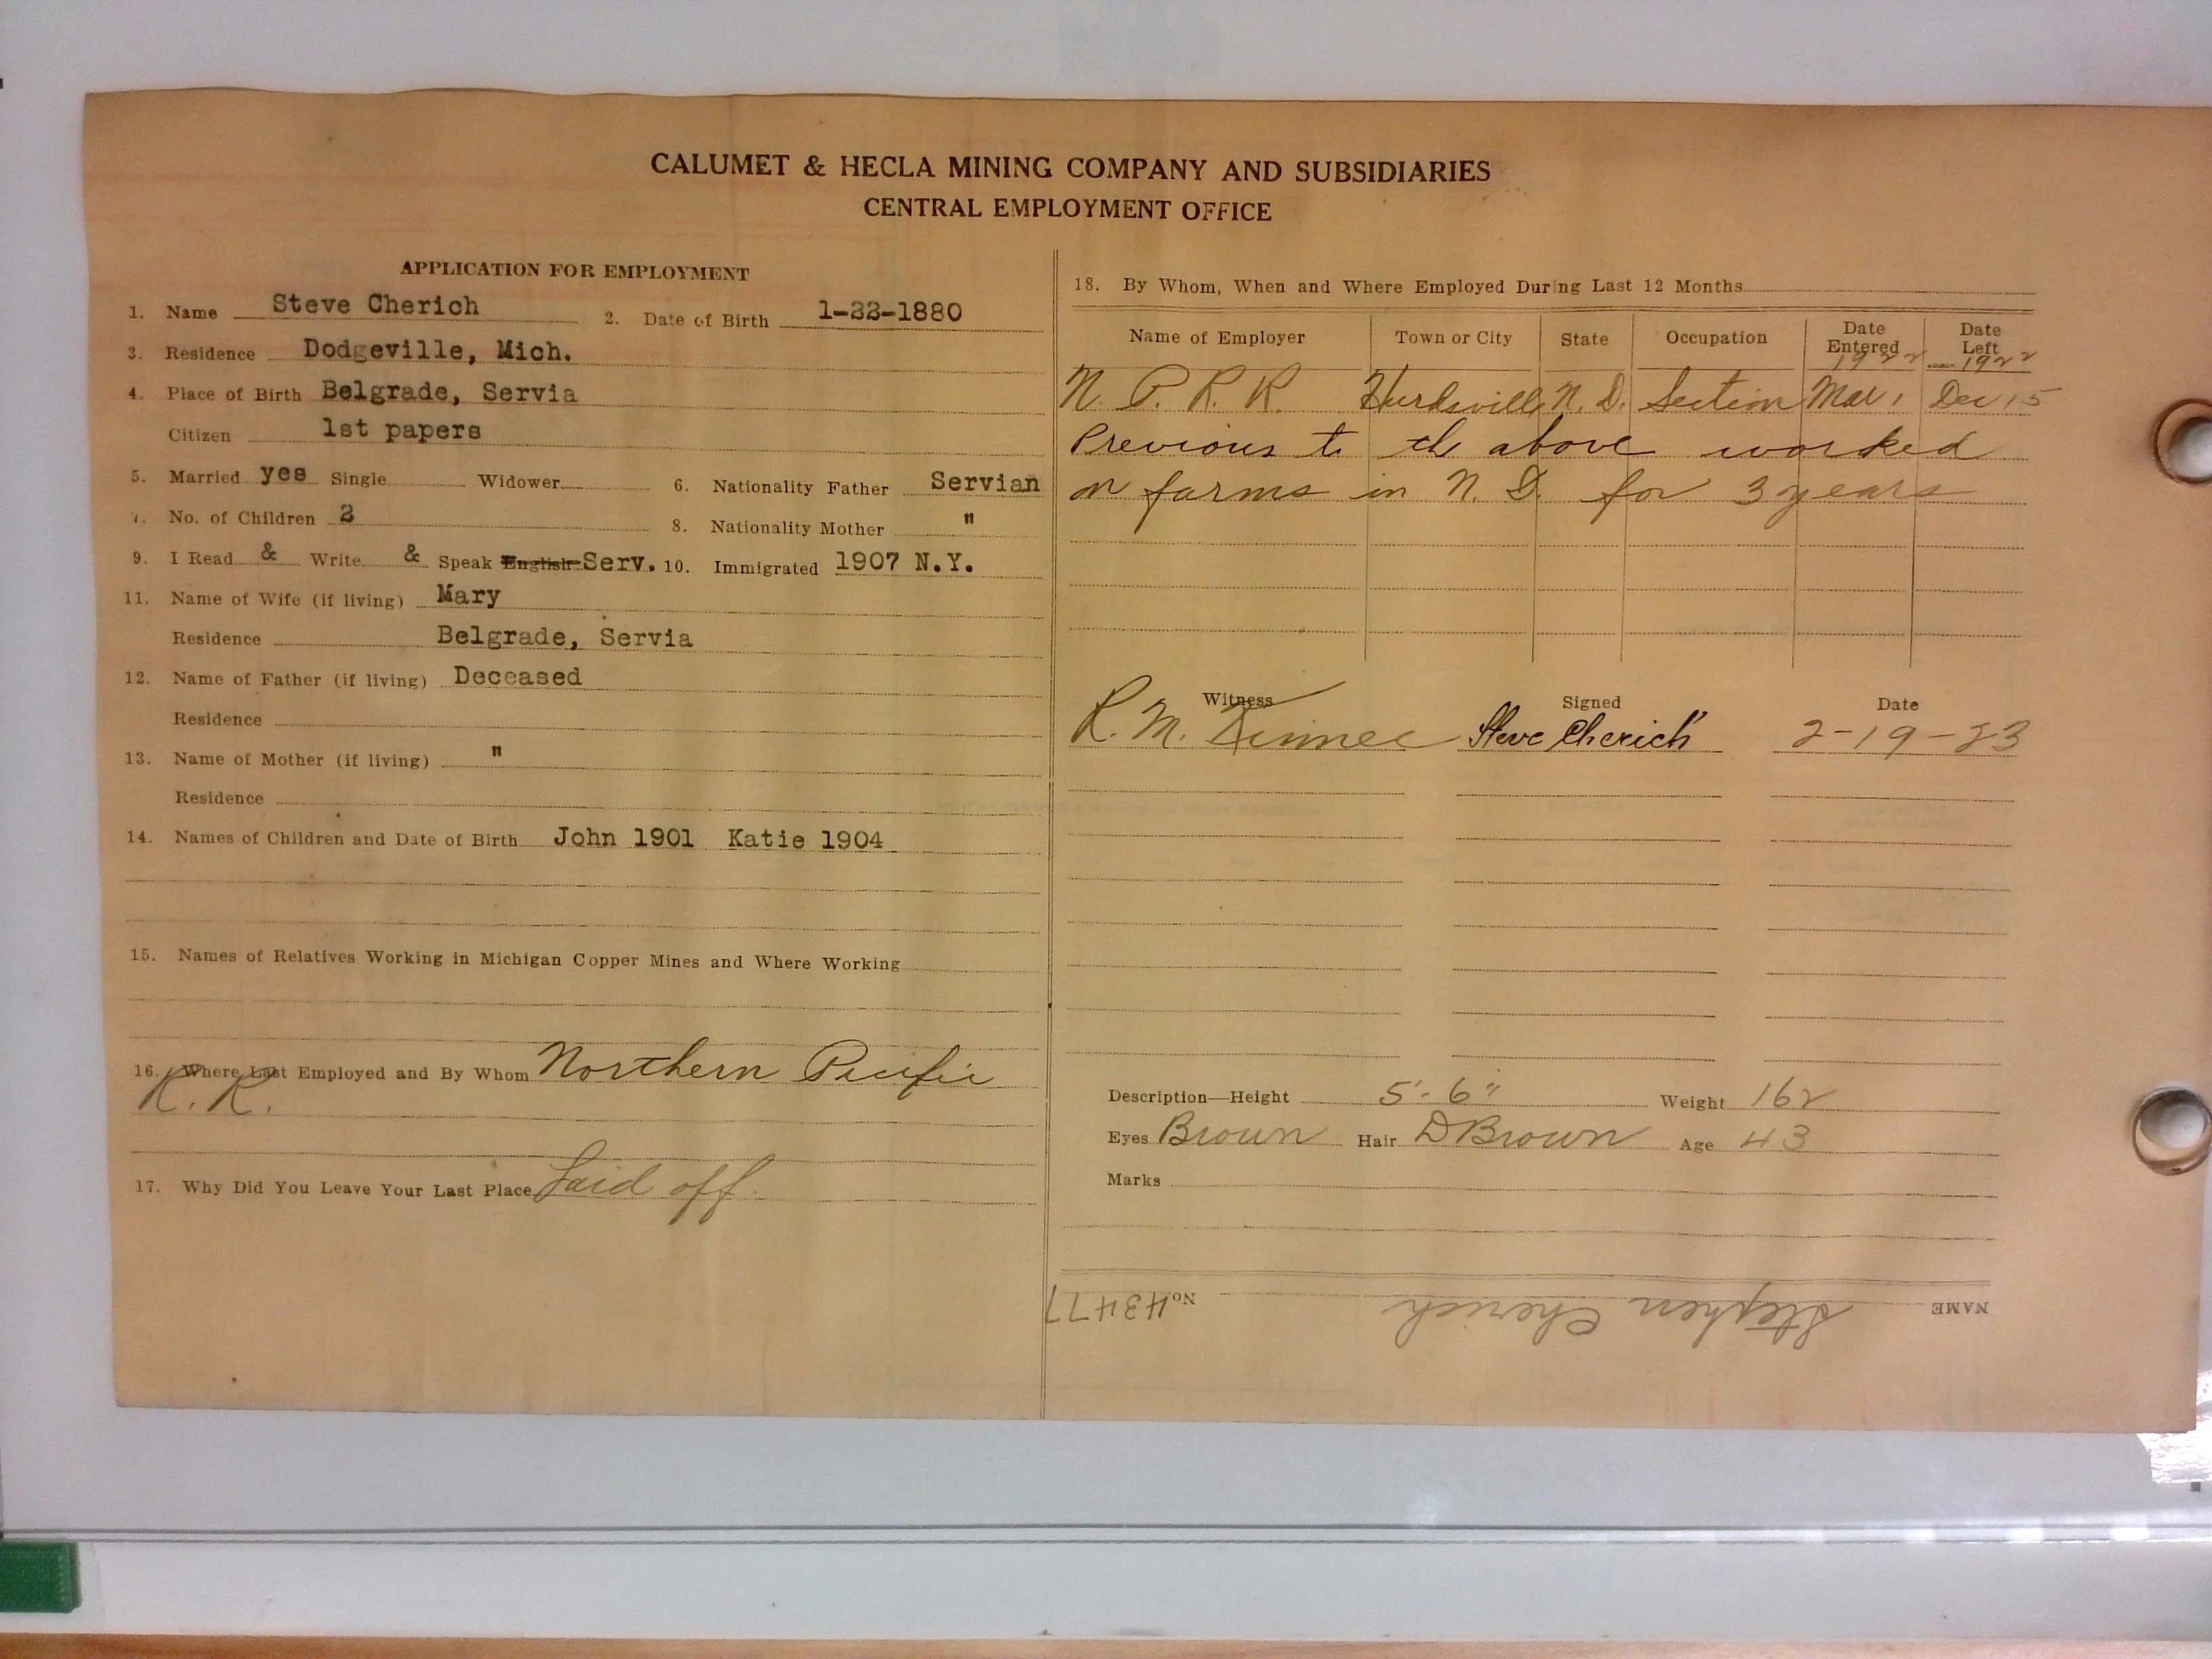 CALUMET & HECLA MINING COMPANY AND SUBSIDIARIES
CENTRAL EMPLOYMENT OFFICE
APPLICATION FOR EMPLOYMENT
1. Name Steve Cherich 2. Date of Birth 1-22-1880
3. Residence Dodgeville, Mich.
4. Place of Birth Belgrade, Servia
Citizen 1st papers
5. Married yes Single Widower 6. Nationality Father Servian
7. No. of Children 2 8. Nationality Mother "
9. I Read & Write & Speak English Serv. 10. Immigrated 1907 N.Y.
11. Name of Wife (if living) Mary
Residence Belgrade, Servia
12. Name of Father (if living) Deceased
Residence
13. Name of Mother (if living) "
Residence
14. Names of Children and Date of Birth John 1901 Katie 1904
15. Names of Relatives Working in Michigan Copper Mines and Where Working
16. Where Last Employed and By Whom Northern Pacific
R. R.
17. Why Did You Leave Your Last Place Laid off.
18. By Whom, When and Where Employed During Last 12 Months
Name of Employer Town or City State Occupation Date Entered Date Left
1922 1922
N. P. R. R. Hurdsville N. D. Section Mar 1 Dec 15
Previous to the above worked
on farms in N. D. for 3 years
Witness Signed Date
R. M. Kinnee Steve Cherich 2-19-23
Description—Height 5'-6" Weight 162
Eyes Brown Hair D Brown Age 43
Marks
NAME Stephen Cherich No. 43477